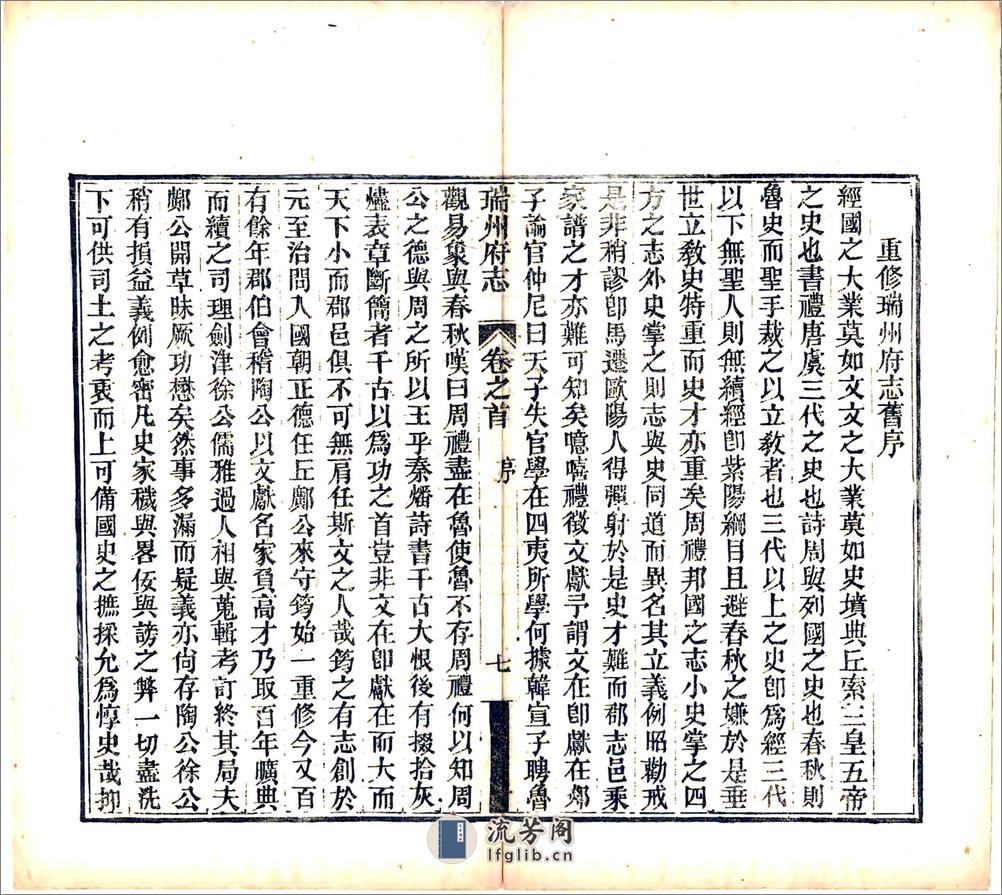 重修瑞州府志舊序
經國之大業莫如文文之大業莫如史墳典丘索三皇五帝
之史也書禮唐虞三代之史也詩周與列國之史也春秋則
魯史而聖手裁之以立教者也三代以上之史卽爲經三代
以下無聖人則無續經卽紫陽綱目且避春秋之嫌於是垂
世立教史特重而史才亦重矣周禮邦國之志小史掌之四
方之志外史掌之則志與史同道而異名其立義例昭勸戒
是非稍謬卽馬遷歐陽人得彈射於是史才難而郡志邑乘
家譜之才亦難可知矣噫嘻禮徵文獻予謂文在卽獻在郯
子論官仲尼曰天子失官學在四夷所學何據韓宣子聘魯
瑞州府志
卷之首
序
七
觀易象與春秋嘆曰周禮盡在魯使魯不存周禮何以知周
公之德與周之所以王乎秦燔詩書千古大恨後有掇拾灰
燼表章斷簡者千古以爲功之首豈非文在卽獻在而大而
天下小而郡邑俱不可無肩任斯文之人哉筠之有志創於
元至治間入國朝正德任丘鄺公來守筠始一重修今又百
有餘年郡伯會稽陶公以文獻名家負高才乃取百年曠典
而續之司理劍津徐公儒雅過人相與蒐輯考訂終其局夫
鄺公開草昧厥功懋矣然事多漏而疑義亦尚存陶公徐公
稍有損益義例愈密凡史家穢與畧佞與謗之弊一切盡洗
下可供司土之考衷而上可備國史之摭採允爲惇史哉抑
流芳阁
lfglib.cn